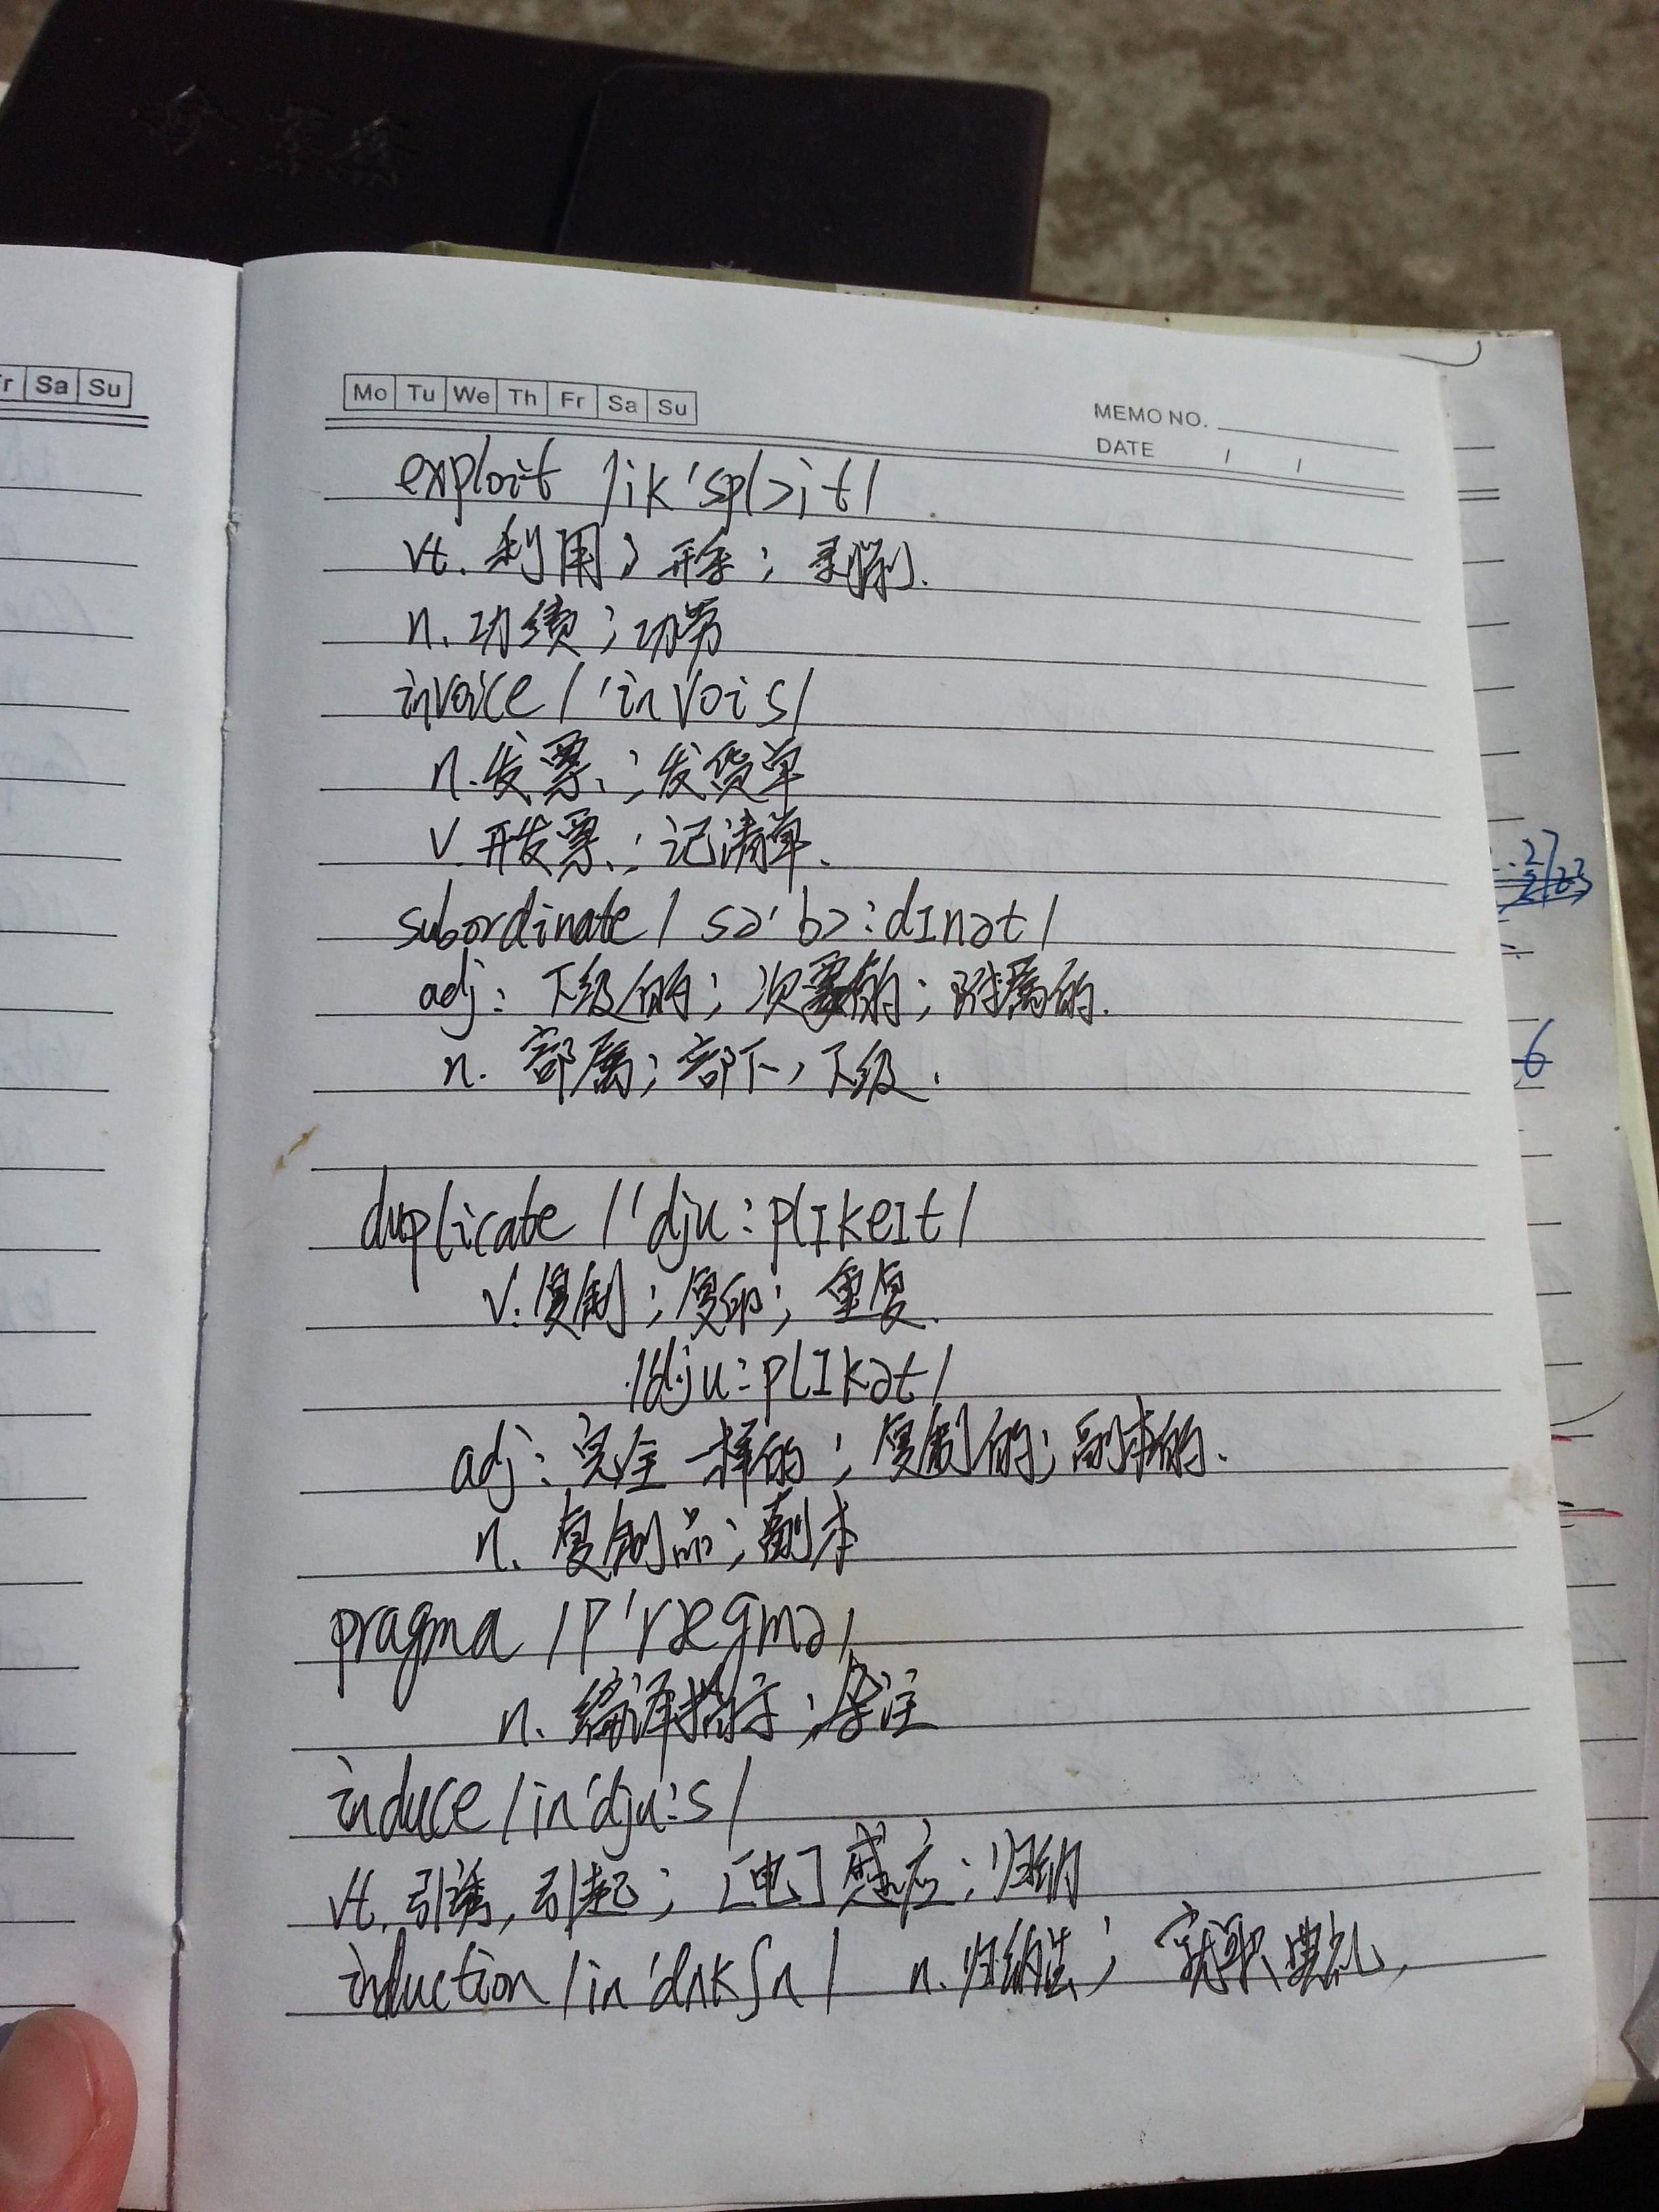 Sa Su
Mo Tu We Th Fr Sa Su
MEMO NO.
DATE / /
exploit /ik'splɔit/
vt. 利用; 开采; 剥削.
n. 功绩; 功劳
invoice /'invois/
n. 发票; 发货单
v. 开发票; 记清单.
subordinate / sə'bɔ:dɪnət/
adj: 下级的; 次要的; 附属的.
n. 部属; 部下, 下级.
duplicate /'dju:plɪkeɪt/
v. 复制; 复印; 重复.
/'dju:plɪkət/
adj: 完全一样的; 复制的; 副本的.
n. 复制品; 副本
pragma /p'rægmə/
n. 编译指示; 杂注
induce /in'dju:s/
vt. 引诱, 引起; [电] 感应; 归纳
induction /in'dʌkʃn/ n. 归纳法; 就职典礼,
6